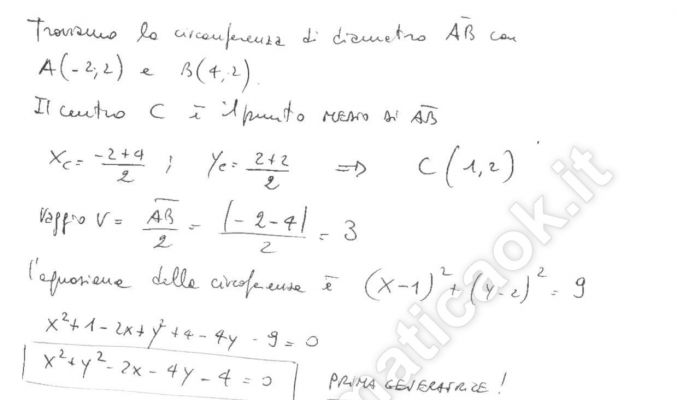 Troviamo la circonferenza di diametro A̅B̅ con
A(-2;2) e B(4,2).
Il centro C è il punto MEDIO di A̅B̅
Xc = (-2+4)/2 ; Yc = (2+2)/2 ⇒ C(1,2)
raggio r = A̅B̅/2 = |-2-4|/2 = 3
l'equazione della circonferenza è (x-1)² + (y-2)² = 9
x²+1-2x+y²+4-4y-9=0
x²+y²-2x-4y-4=0 PRIMA GENERATRICE!
maticaok.it